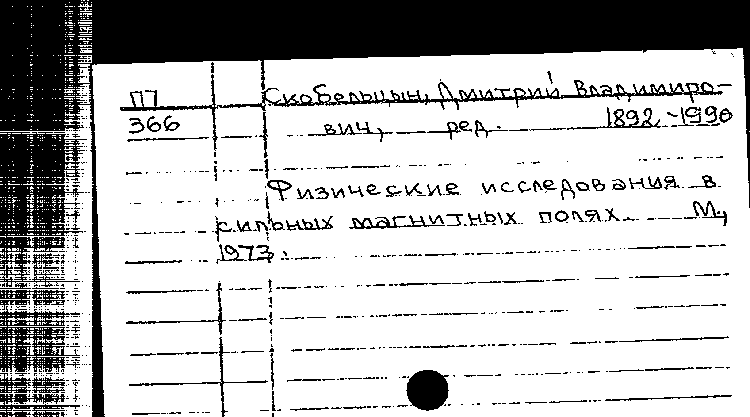 П7 Скобельцын, Дмитрий Владимиро-
366 вич, ред. 1892-1990
Физические исследования в
сильных магнитных полях. М.,
1973.